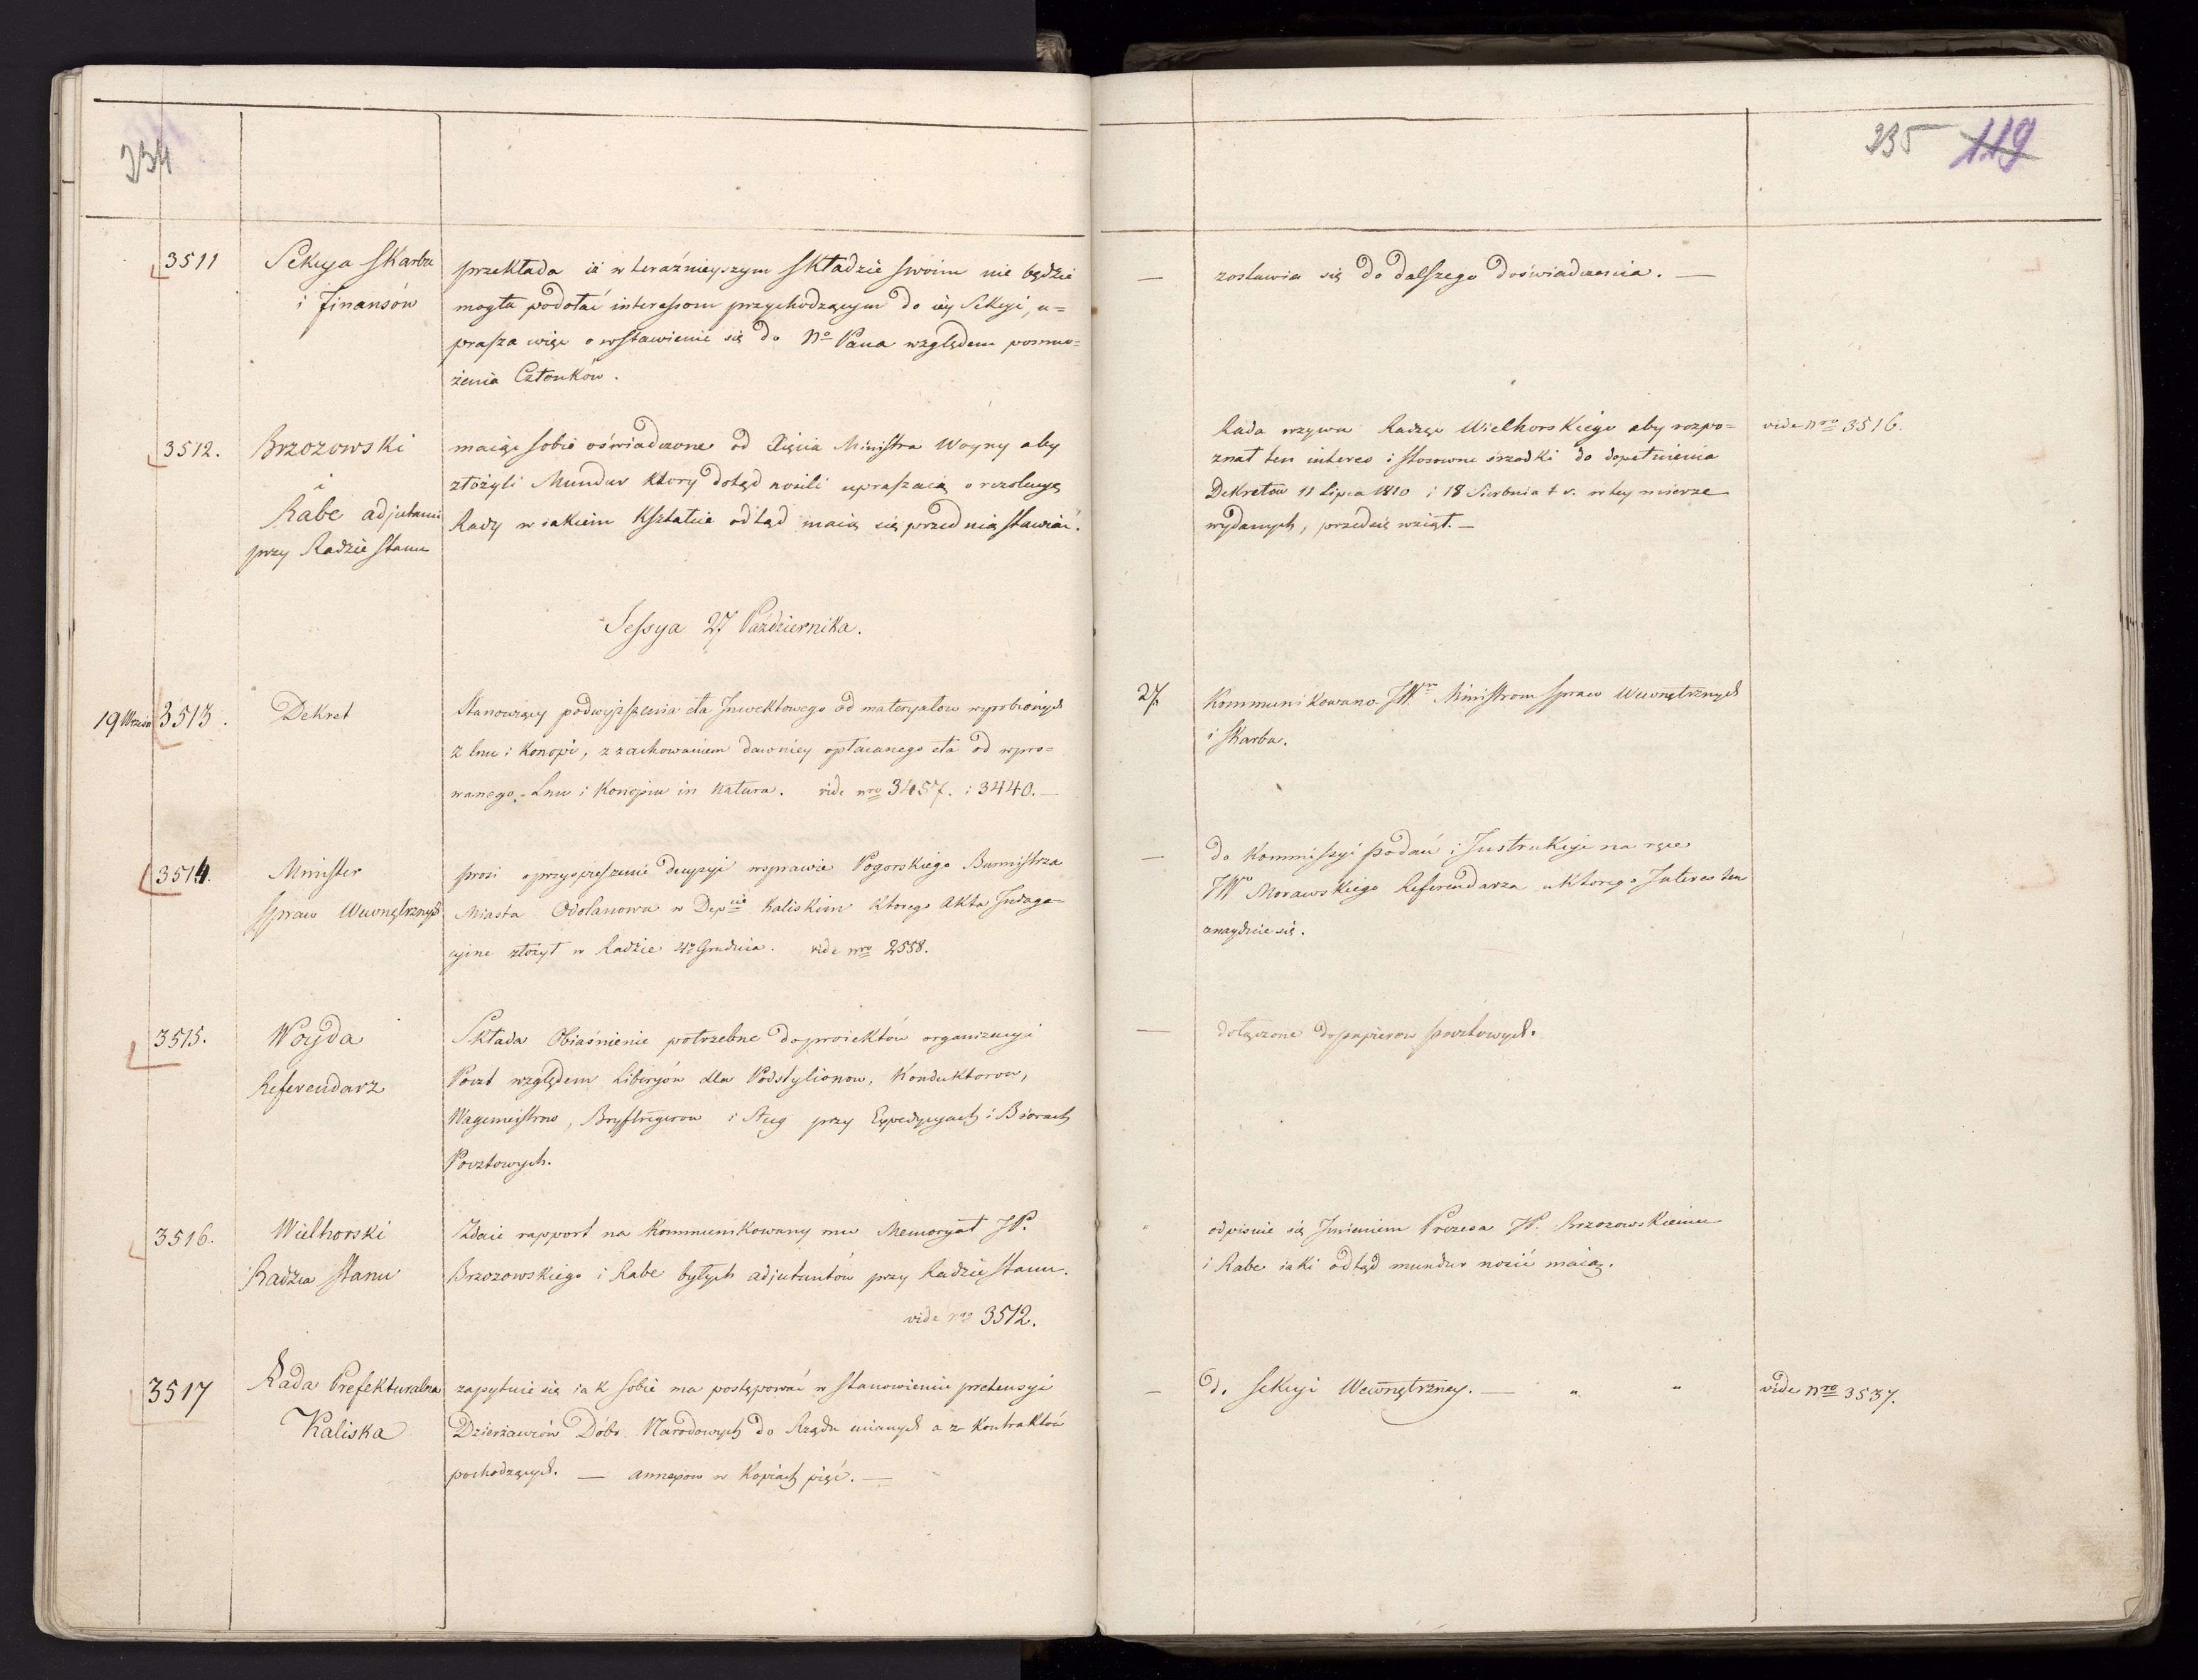 234
3511 Sekcya Skarbu
i Finansów
przekłada iż w teraźnieyszym składzie swoim nie będzie
mogła podołać interessom przychodzącym do iéy Sekcyi, u=
prasza więc o wstawienie się do No Pana względem pomno=
żenia Członków.
3512. Brzozowski
i
Rabe adjutanci
przy Radzie Stanu
maiąc sobie oświadczone od Xięcia Ministra Woyny aby
złożyli Mundur który dotąd nosili upraszaią o rezolucyą
Rady w iakiem kształcie odtąd maią się przed nią stawiać.
Sessya 27 Października.
19 Wrześn 3513. Dekret
Stanowiący podwyższenia cła Inwektowego od materyałow wyrobionych
z lnu i Konopi, z zachowaniem dawniey opłacanego cła od wpro=
wanego Lnu i Konopiu in natura. vide nro 3457. i 3440. —
3514. Minister
Spraw Wewnętrznych
prosi o przyspieszenie decyzyi w sprawie Pogorskiego Burmistrza
Miasta Odolanowa w Depcie Kaliskim ktorego Akta Indaga=
cyine złożył w Radzie Grudnia. vide nro 2558.
3515. Woyda
Referendarz
Składa Obiaśnienie potrzebne do proiektów organizacyi
Poczt względem Liberyów dla Postylionow, Konduktorow,
Wagemeistrow, Bryftregerow i Sług przy Expedycyach i Biorach
Pocztowych.
3516. Wielhorski
Radzca Stanu
Zdaie rapport na Kommunikowany mu Memoryał JP.
Brzozowskiego i Rabe byłych adjutantów przy Radzie Stanu.
vide nro 3512.
3517 Rada Prefekturalna
Kaliska
zapytuie się iak sobie ma postępować w stanowieniu pretensyi
Dzierżawców Dóbr Narodowych do Rządu mianych a z Kontraktów
pochodzących. — annexow w Kopiach pięć. —
235 119
— zostawia się do dalszego doświadczenia. —
Rada wzywa Radzcę Wielhorskiego aby rozpo=
znał ten interes i stosowne srzodki do dopełnienia
Dekretów 11 Lipca 1810 i 18 Sierbnia t r. w tey mierze
wydanych, przedsię wziął. —
vide nro 3516.
27. Kommunikowano JWm Ministrom Spraw Wewnętrznych
i Skarbu.
— do Kommissyi Podań i Instrukcyi na ręce
JWo Morawskiego Referendarza u ktorego Interes ten
znayduie się.
— dołączone do papierow pocztowych.
" odpisuie się Imieniem Prezesa JP. Brzozowskiemu
i Rabe iaki odtąd mundur nosić maią.
— do Sekcyi Wewnętrzney. — " "
vide nro 3537.